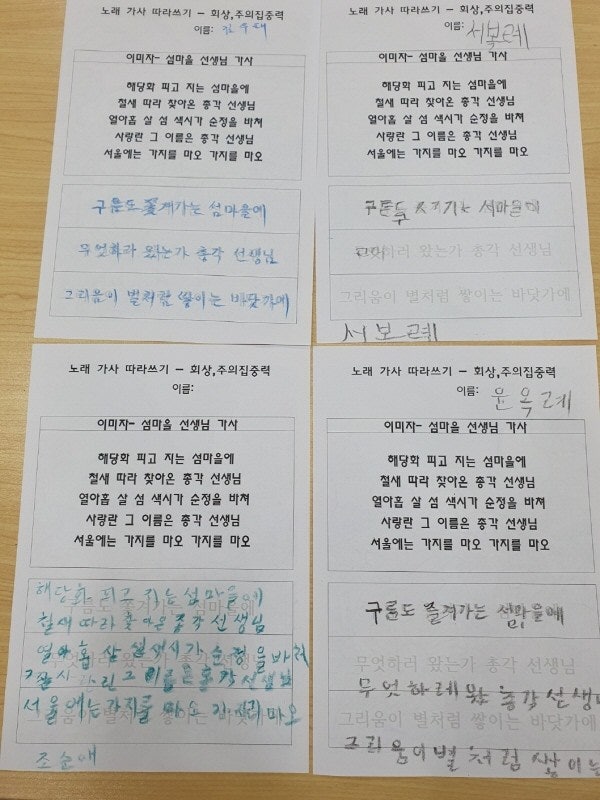 노래 가사 따라쓰기 - 회상,주의집중력
이름:
이미자- 섬마을 선생님 가사
해당화 피고 지는 섬마을에
철새 따라 찾아온 총각 선생님
열아홉 살 섬 색시가 순정을 바쳐
사랑한 그 이름은 총각 선생님
서울에는 가지를 마오 가지를 마오
구름도 쫓겨가는 섬마을에
무엇하라 왔는가 총각 선생님
그리움이 별처럼 쌓이는 바닷가에
노래 가사 따라쓰기 - 회상,주의집중력
이름: 서보례
이미자- 섬마을 선생님 가사
해당화 피고 지는 섬마을에
철새 따라 찾아온 총각 선생님
열아홉 살 섬 색시가 순정을 바쳐
사랑한 그 이름은 총각 선생님
서울에는 가지를 마오 가지를 마오
구름도 쫓겨가는 섬마을에
무엇하러 왔는가 총각 선생님
그리움이 별처럼 쌓이는 바닷가에
서보례
노래 가사 따라쓰기 - 회상,주의집중력
이름:
이미자- 섬마을 선생님 가사
해당화 피고 지는 섬마을에
철새 따라 찾아온 총각 선생님
열아홉 살 섬 색시가 순정을 바쳐
사랑한 그 이름은 총각 선생님
서울에는 가지를 마오 가지를 마오
해당화 피고 지는 섬마을에
철새 따라 찾아온 총각 선생님
열아홉 살 섬색시가 순정을 바쳐
그 이름은 총각 선생님
서울에는 가지를 마오 마오
조순애
노래 가사 따라쓰기 - 회상,주의집중력
이름: 윤옥례
이미자- 섬마을 선생님 가사
해당화 피고 지는 섬마을에
철새 따라 찾아온 총각 선생님
열아홉 살 섬 색시가 순정을 바쳐
사랑한 그 이름은 총각 선생님
서울에는 가지를 마오 가지를 마오
구름도 쫓겨가는 섬마을에
무엇하러 왔는가 총각 선생님
무엇하레 왔 총각선생
그리움이 별처럼 쌓이는 바닷가에
그리움이 별처럼 쌓이는